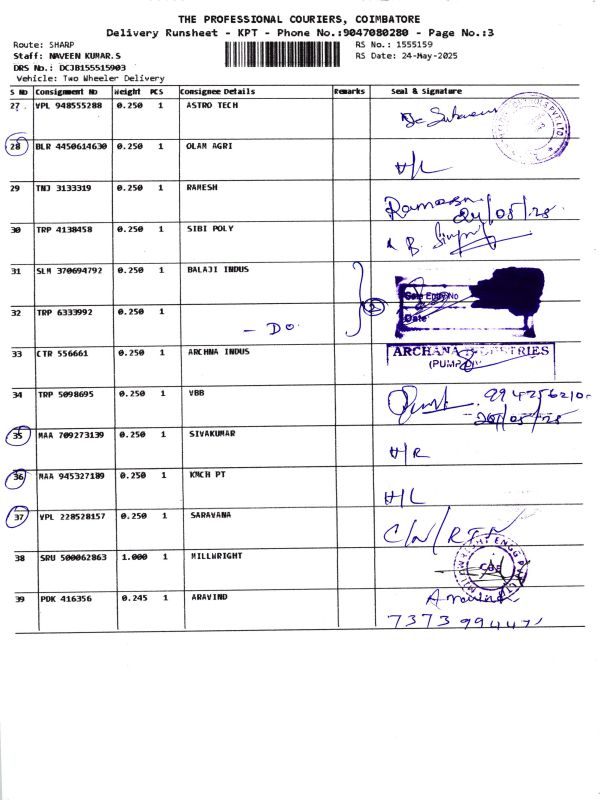 THE PROFESSIONAL COURIERS, COIMBATORE
Delivery Runsheet - KPT - Phone No.:9047080280 - Page No.:3
Route: SHARP
RS No.: 1555159
Staff: NAVEEN KUMAR.S
RS Date: 24-May-2025
DRS No.: DCJB155515903
Vehicle: Two Wheeler Delivery
S No Consignment No Weight PCS Consignee Details Remarks Seal & Signature
27 VPL 948555288 0.250 1 ASTRO TECH
28 BLR 4450614630 0.250 1 OLAM AGRI H/L
29 TNJ 3133319 0.250 1 RAMESH
24/05/25
30 TRP 4138458 0.250 1 SIBI POLY
31 SLM 370694792 0.250 1 BALAJI INDUS
2 Gate Entry No
32 TRP 6333992 0.250 1 - DO Date
33 CTR 556661 0.250 1 ARCHNA INDUS ARCHANA INDUSTRIES
(PUMP DIV
34 TRP 5098695 0.250 1 VBB
35 MAA 709273139 0.250 1 SIVAKUMAR H/R
36 MAA 945327189 0.250 1 KMCH PT H/L
37 VPL 228528157 0.250 1 SARAVANA C/N/RTN
38 SRU 500062863 1.000 1 MILLWRIGHT
39 PDK 416356 0.245 1 ARAVIND Aravind